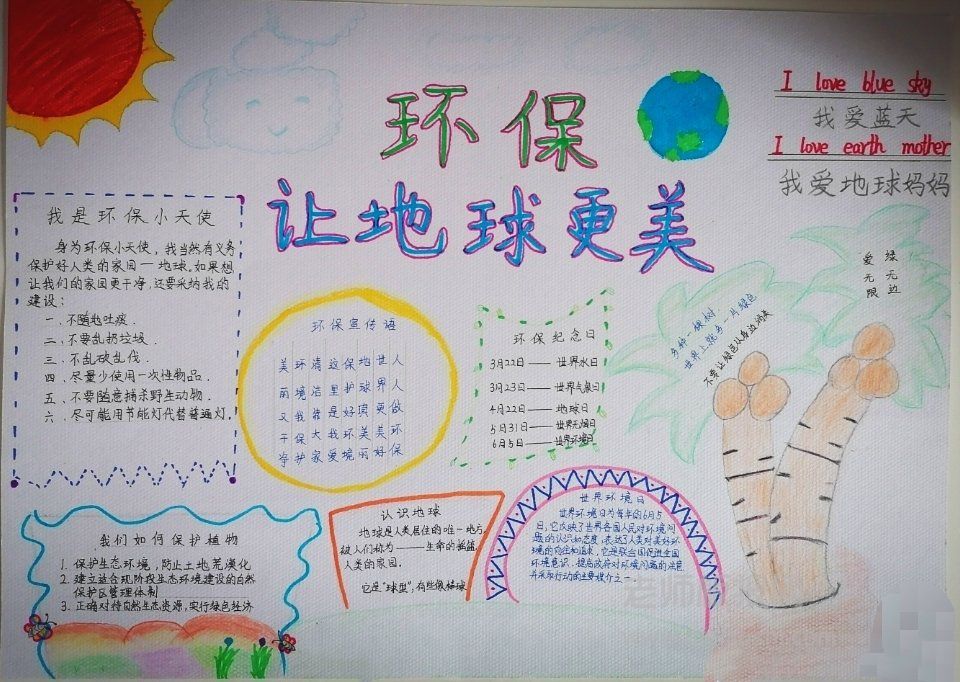 环保
让地球更美
I love blue sky
我爱蓝天
I love earth mother
我爱地球妈妈
我是环保小天使
身为环保小天使，我当然有义务
保护好人类的家园—地球。如果想
让我们的家园更干净，还要采纳我的
建设：
一、不随地吐痰．
二、不要乱扔垃圾．
三、不乱砍乱伐．
四、尽量少使用一次性物品．
五、不要随意捕杀野生动物．
六、尽可能用节能灯代替普通灯。
环保宣传语
美环清这保地世人
丽境洁里护球界人
又我靠是好周更做
干保大我环美美环
净护家爱境丽好保
环保纪念日
3月22日——世界水日
3月23日——世界气象日
4月22日——地球日
5月31日——世界无烟日
6月5日——世界环境日
多种一棵树，
世界上就多一片绿色
不要让绿色从身边消失
爱绿
无无
限边
我们如何保护植物
1. 保护生态环境，防止土地荒漠化
2. 建立适合现阶段生态环境建设的自然
保护区管理体制
3. 正确对待自然生态资源，实行绿色经济
认识地球
地球是人类居住的唯一地方，
被人们称为———生命的摇篮，
人类的家园．
它是“球型”，有些像棒球
世界环境日
世界环境日为每年的6月5
日，它反映了世界各国人民对环境问
题的认识和态度，表达了人类对美好环
境的向往和追求，它是联合国促进全球
环境意识、提高政府对环境问题的注意
并采取行动的主要媒介之一
老师